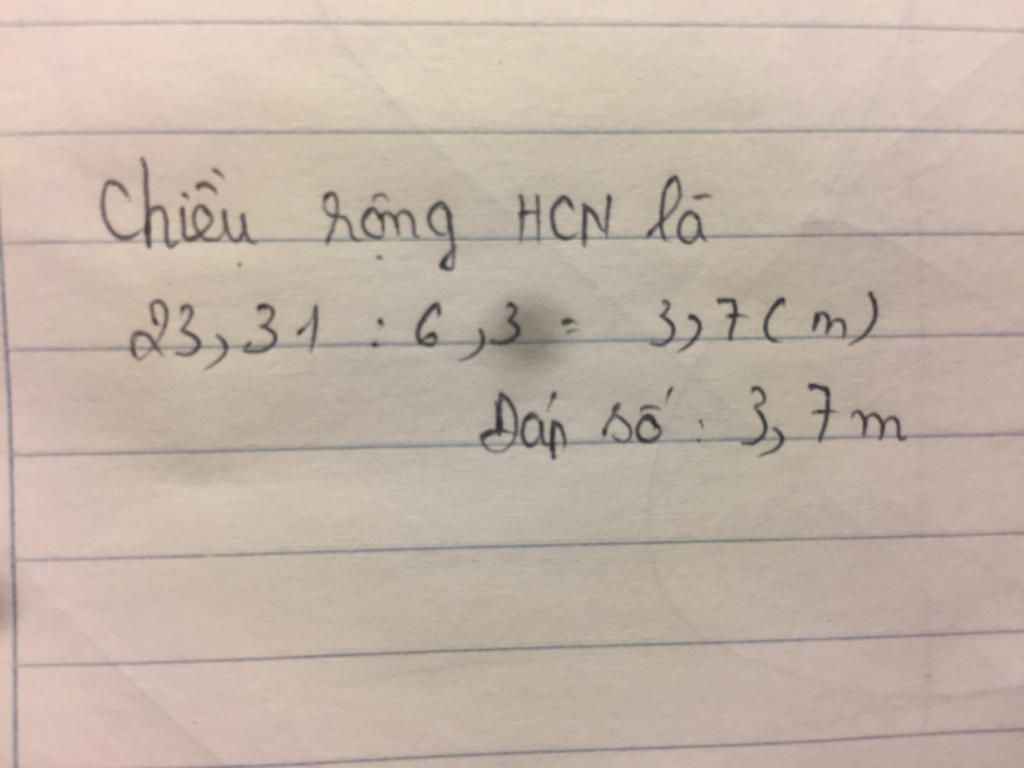 Chiều rộng HCN là
23,31 : 6,3 = 3,7 (m)
Đáp số : 3,7 m